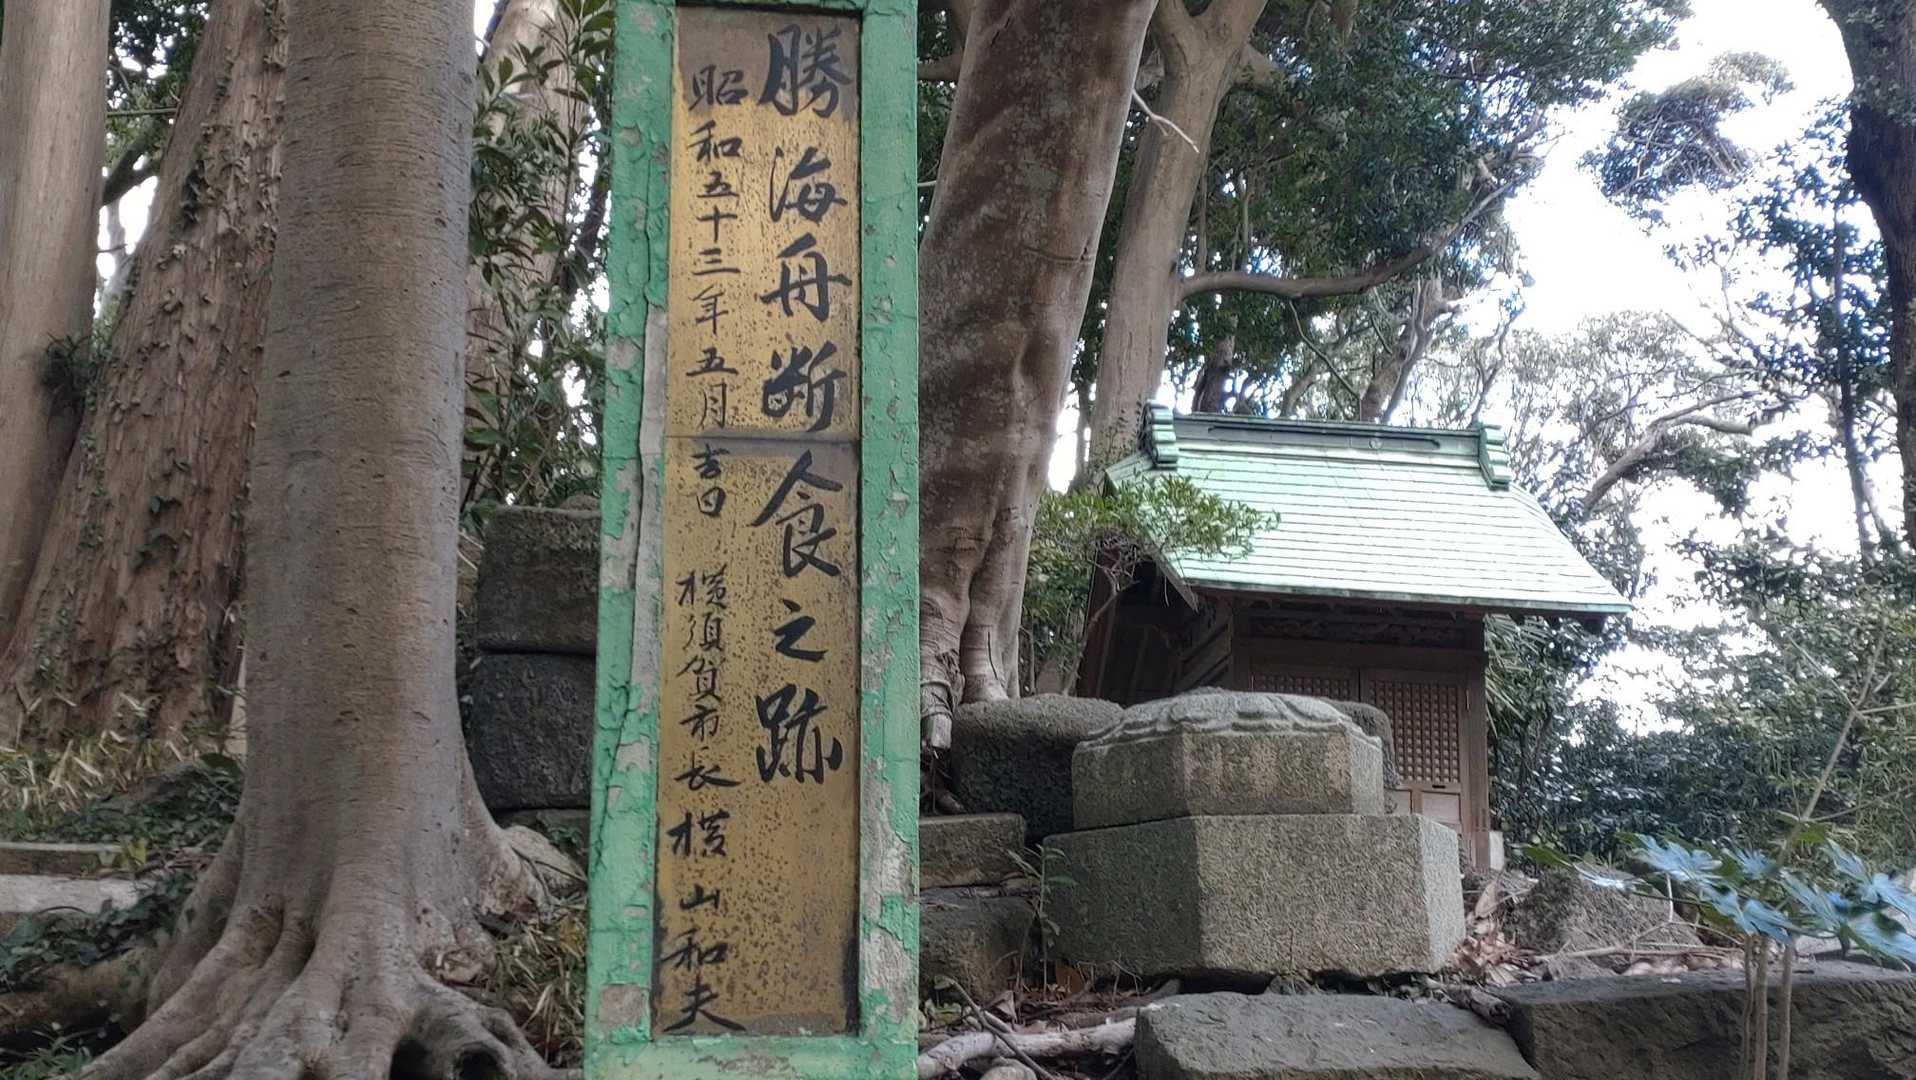 勝海舟断食之跡
昭和五十三年五月吉日 横須賀市長 横山和夫